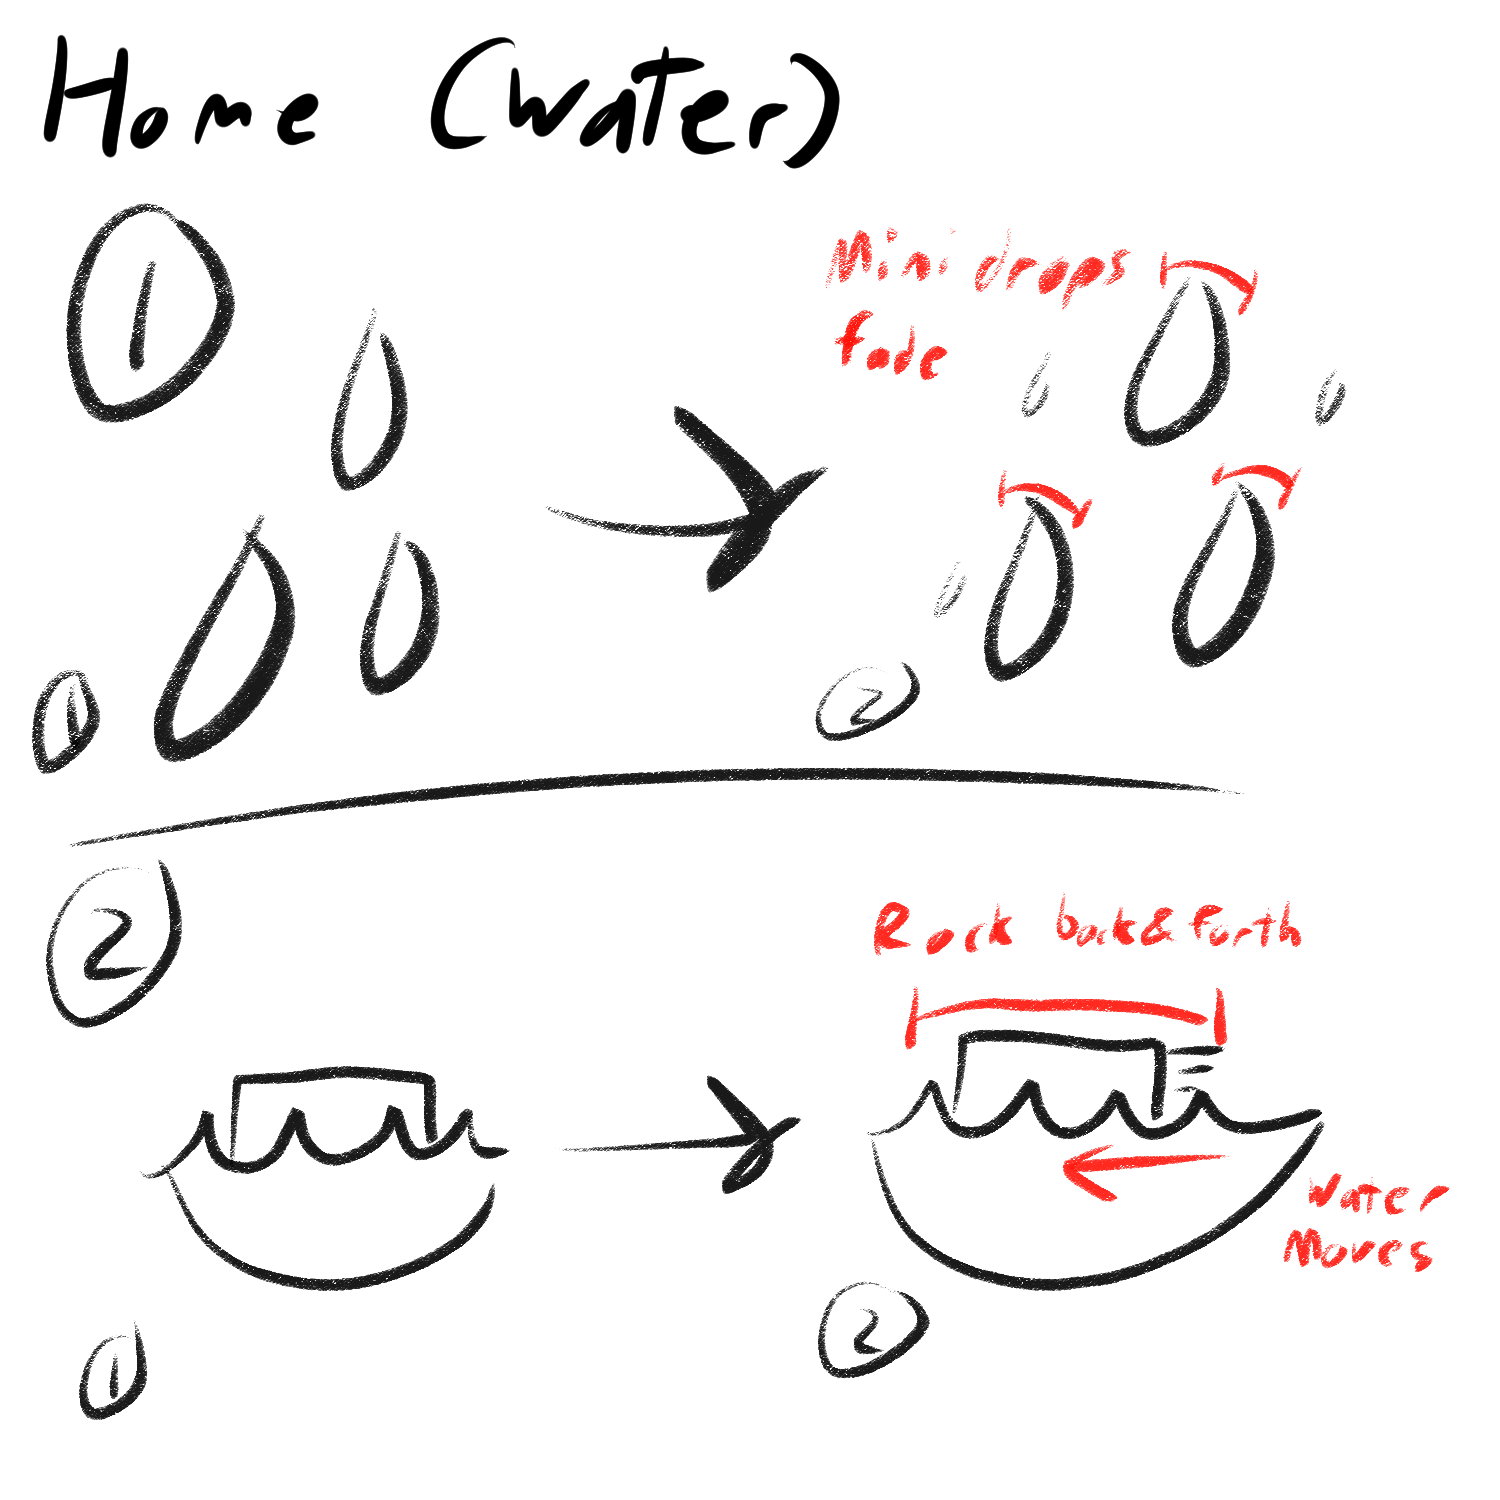 Home (Water)
1
Mini drops
fade
1
2
2
Rock back & forth
Water
Moves
1
2